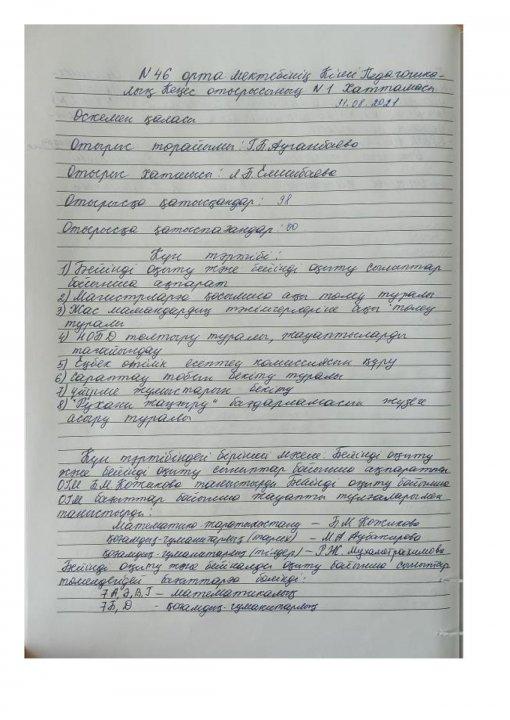 N46 орта мектебінің Кіші Педагогика-
лық Кеңес отырысының N1 Хаттамасы
31.08.2021
Өскемен қаласы
Отырыс төрайымы: Г.Б.Ауганбаева
Отырыс хатшысы: Л.Б.Елшибаева
Отырысқа қатысқандар: 98
Отырысқа қатыспағандар: 00
Күн тәртібі:
1) Бейінді оқыту және бейінді оқыту сыныптар
бойынша ақпарат
2) Магистрларға қосымша ақы төлеу туралы
3) Жас мамандардың тәлімгерлеріне ақы төлеу
туралы
4) НОБД толтыру туралы, жауаптыларды
тағайындау
5) Еңбек өтілін есептеу комиссиясын құру
6) Сараптау тобын бекіту туралы
7) Үйірме жұмыстарын бекіту
8) "Рухани жаңғыру" бағдарламасын жүзеге
асыру туралы
Күн тәртібіндегі бірінші мәселе Бейінді оқыту
және бейінді оқыту сыныптар бойынша ақпаратты
ОІМ Б.М Кожикова таныстырды. Бейінді оқыту бойынша
ОІМ бағыттар бойынша жауапты тұлғаларымен
таныстырды:
Математика жаратылыстану – Б.М Кожикова
Қоғамдық-гуманитарлық (тарих) – М.А Аубакирова
Қоғамдық-гуманитарлық (тілдер) – Р.Ж.
Бейінді оқыту және бейналды оқыту бойынша сыныптар
төмендегідей бағыттарға бөлінді:
7А, Ә, В, Г – математикалық
7Б, Д - қоғамдық-гуманитарлық